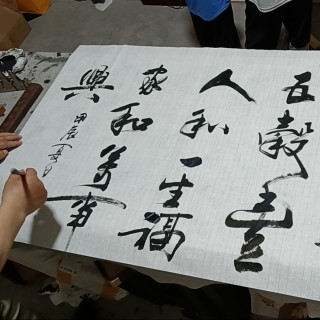 五穀豐
人和一生福
家和萬事
興
甲辰夏日